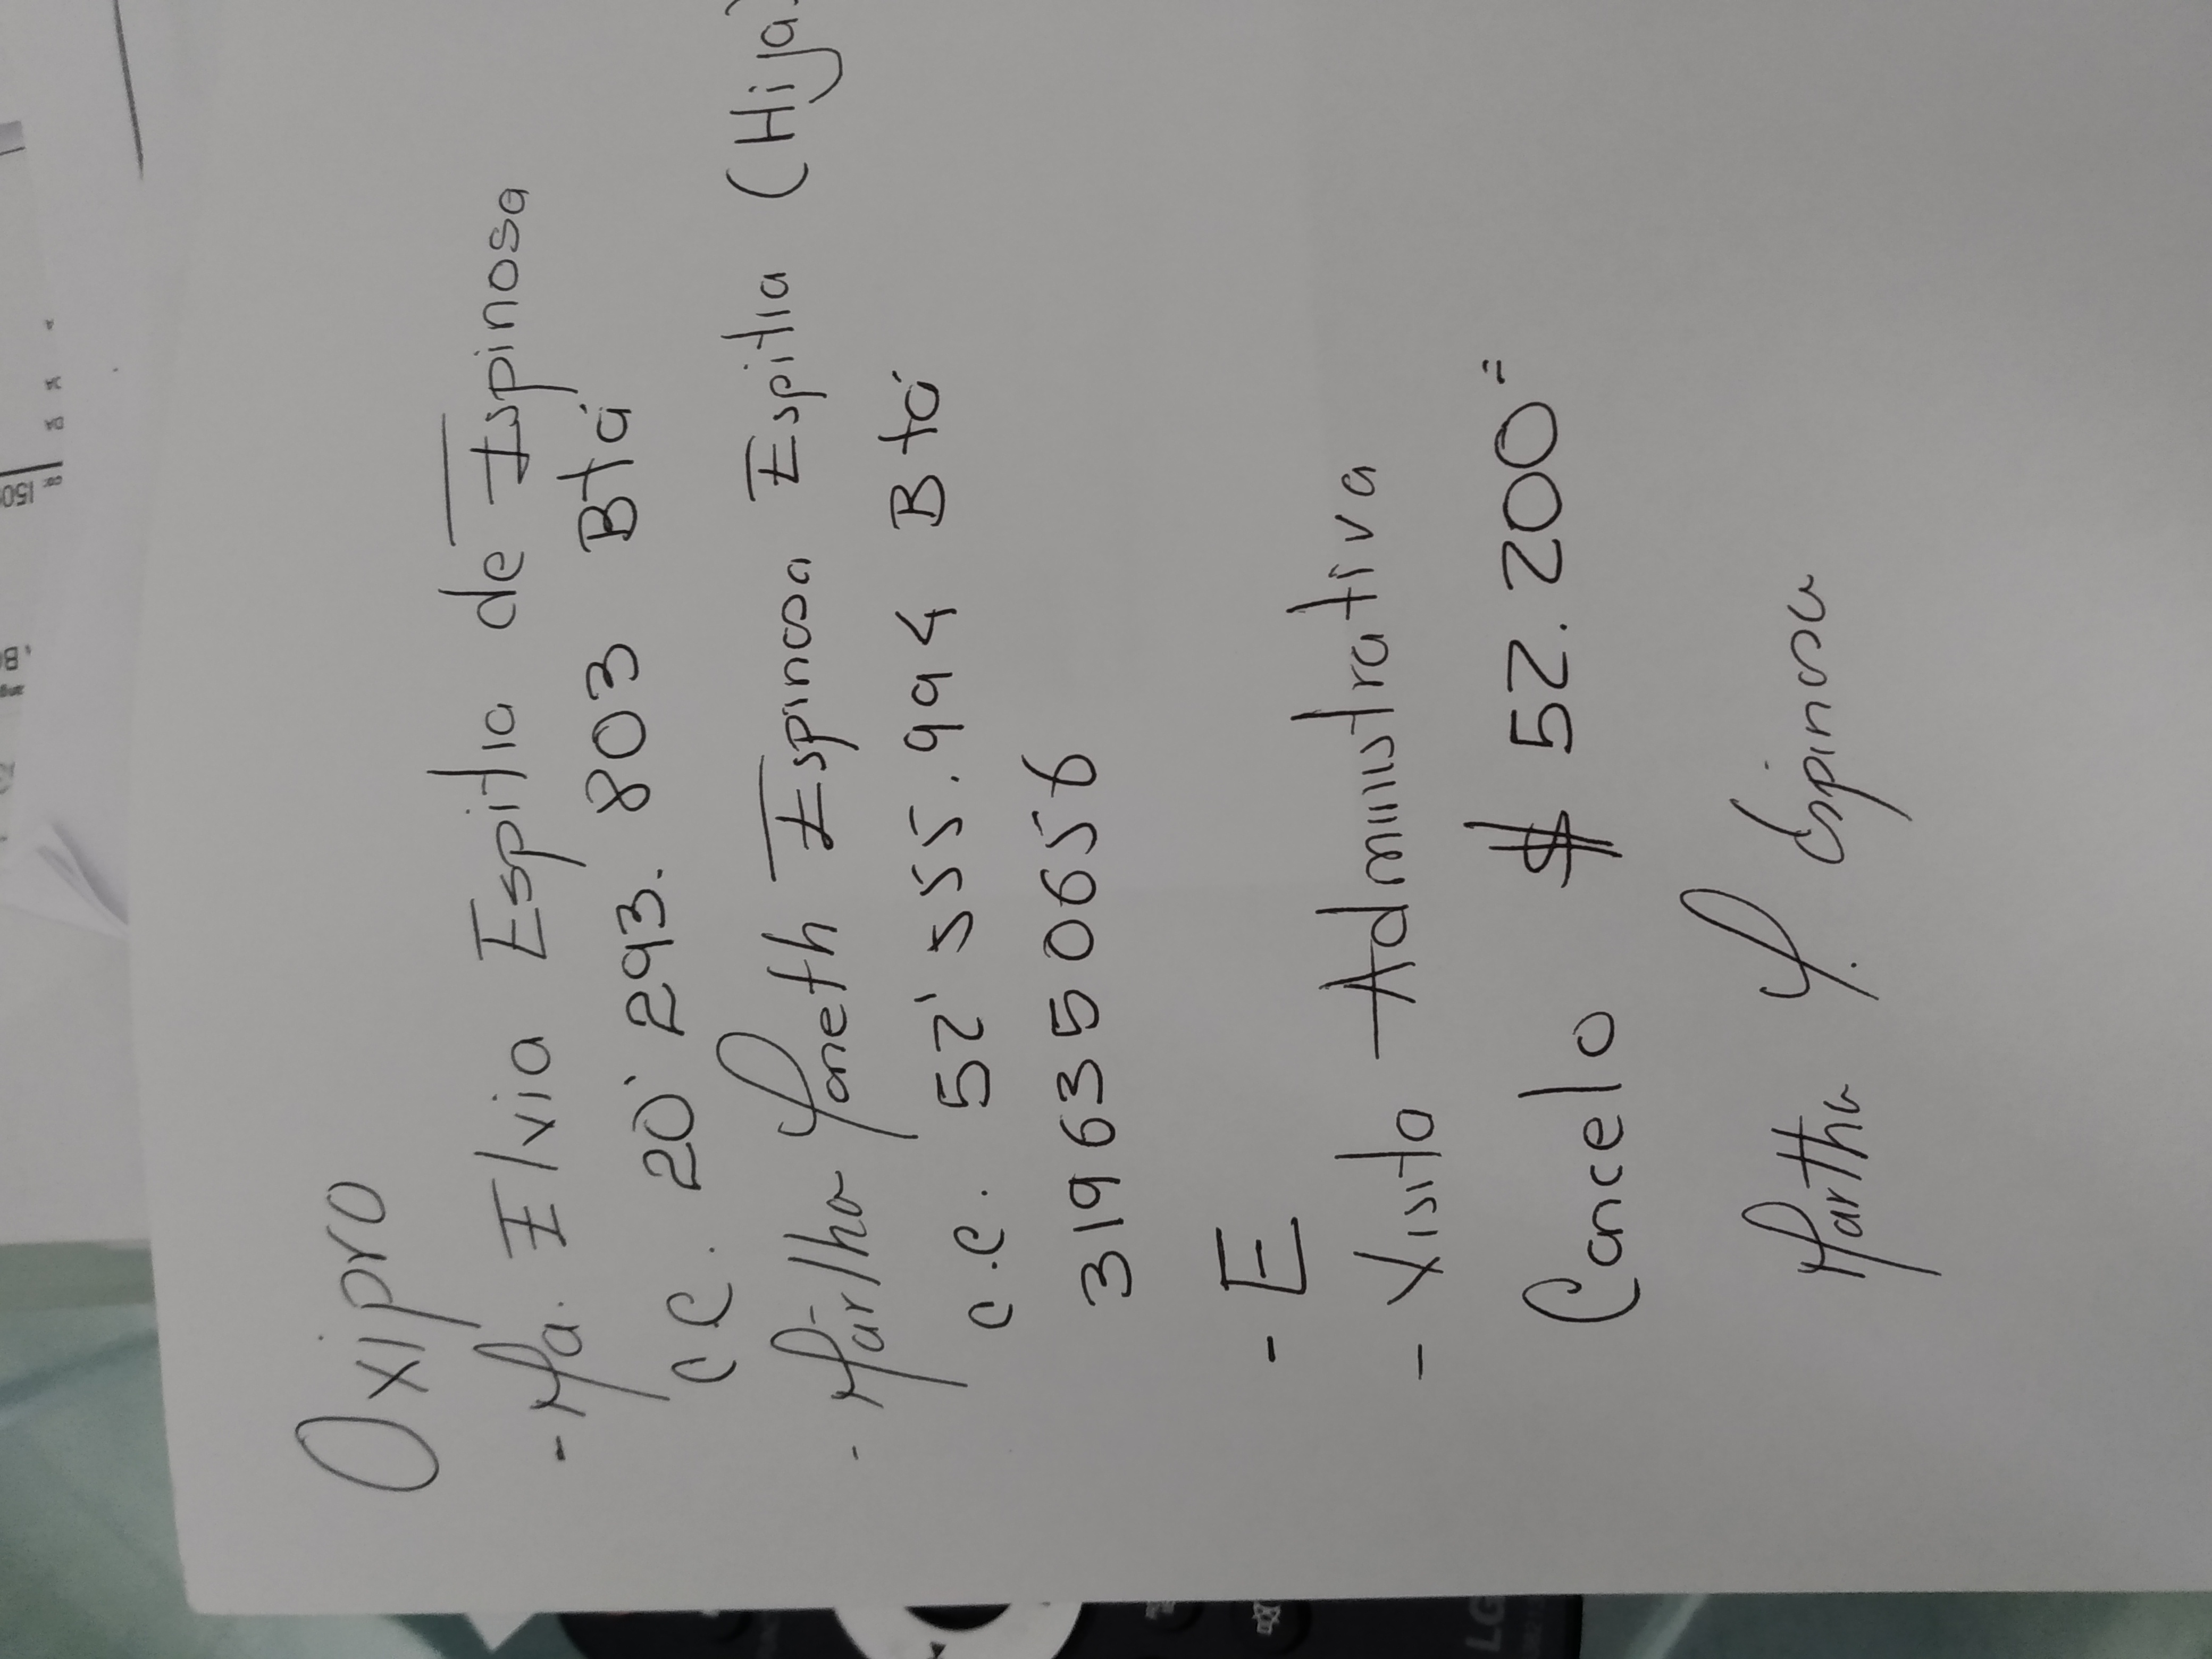 Oxipro
- Ma. Elvia Espitia de Espinosa
CC. 20'293.803 Bta
- Martha Yaneth Espinosa Espitia (Hija)
c.c. 52'555.994 Bta
3196350656
- E
- Visita Administrativa
Cancelo $ 52.200=
Martha Y. Espinosa
LG